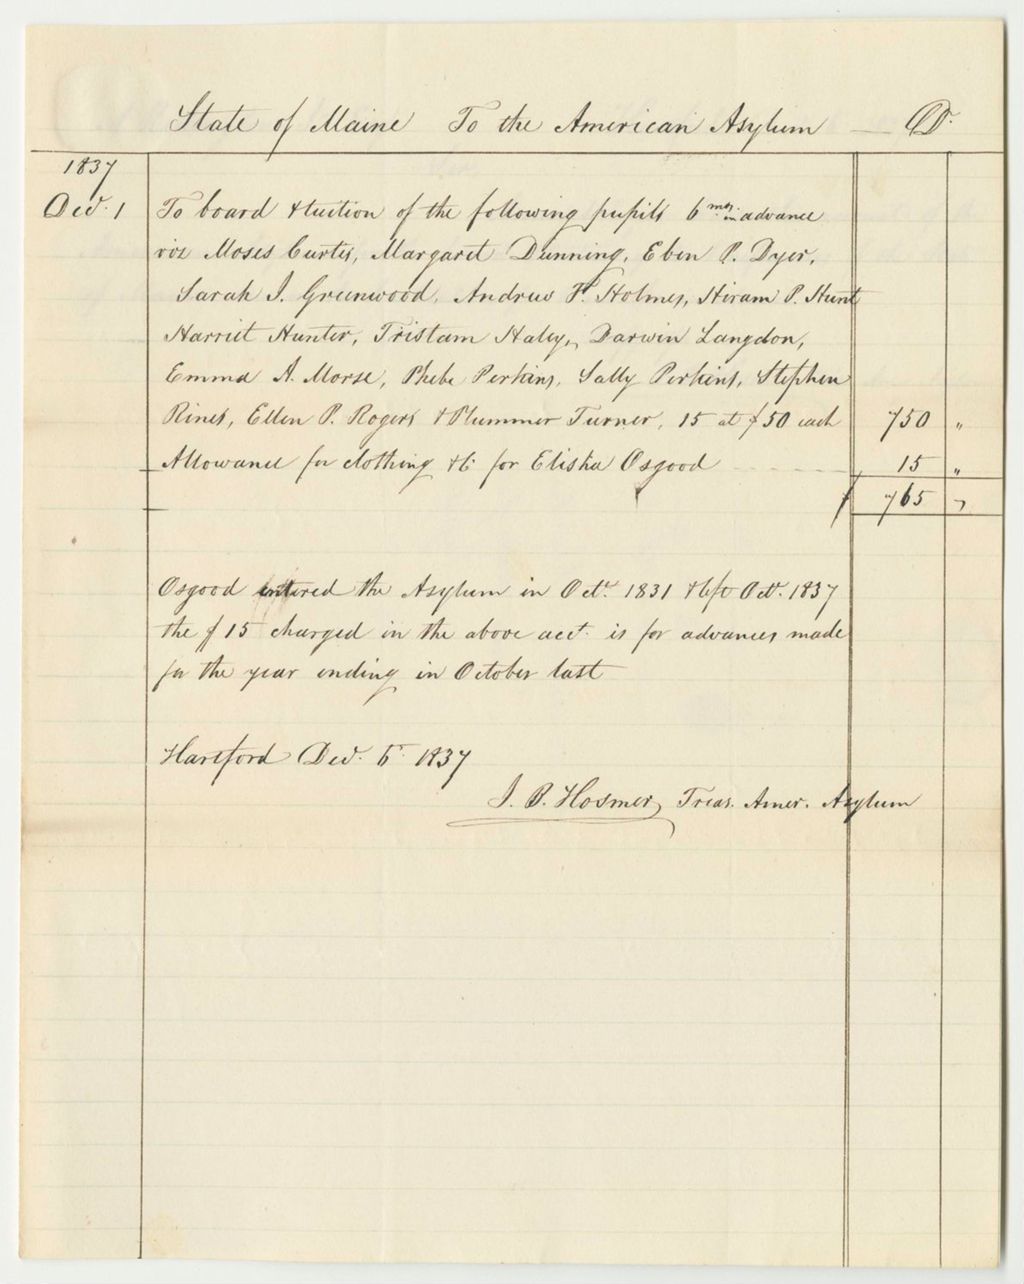 State of Maine To the American Asylum — Dr.
1837
Decr. 1 To board & tuition of the following pupils 6 mos. in advance
viz Moses Curtis, Margaret Dunning, Eben P. Dyer,
Sarah J. Greenwood, Andrew P. Holmes, Hiram P. Hunt
Harriet Hunter, Tristam Haley, Darwin Langdon,
Emma A. Morse, Phebe Perkins, Sally Perkins, Stephen
Rines, Ellen P. Rogers & Plummer Turner, 15 at $50 each 750 "
Allowance for clothing &c. for Elisha Osgood 15 "
$ 765 "
Osgood entered the Asylum in Octr. 1831 & left Octr. 1837
the $15 charged in the above acct. is for advances made
for the year ending in October last
Hartford Decr. 5 1837
J. B. Hosmer, Treas. Amer. Asylum